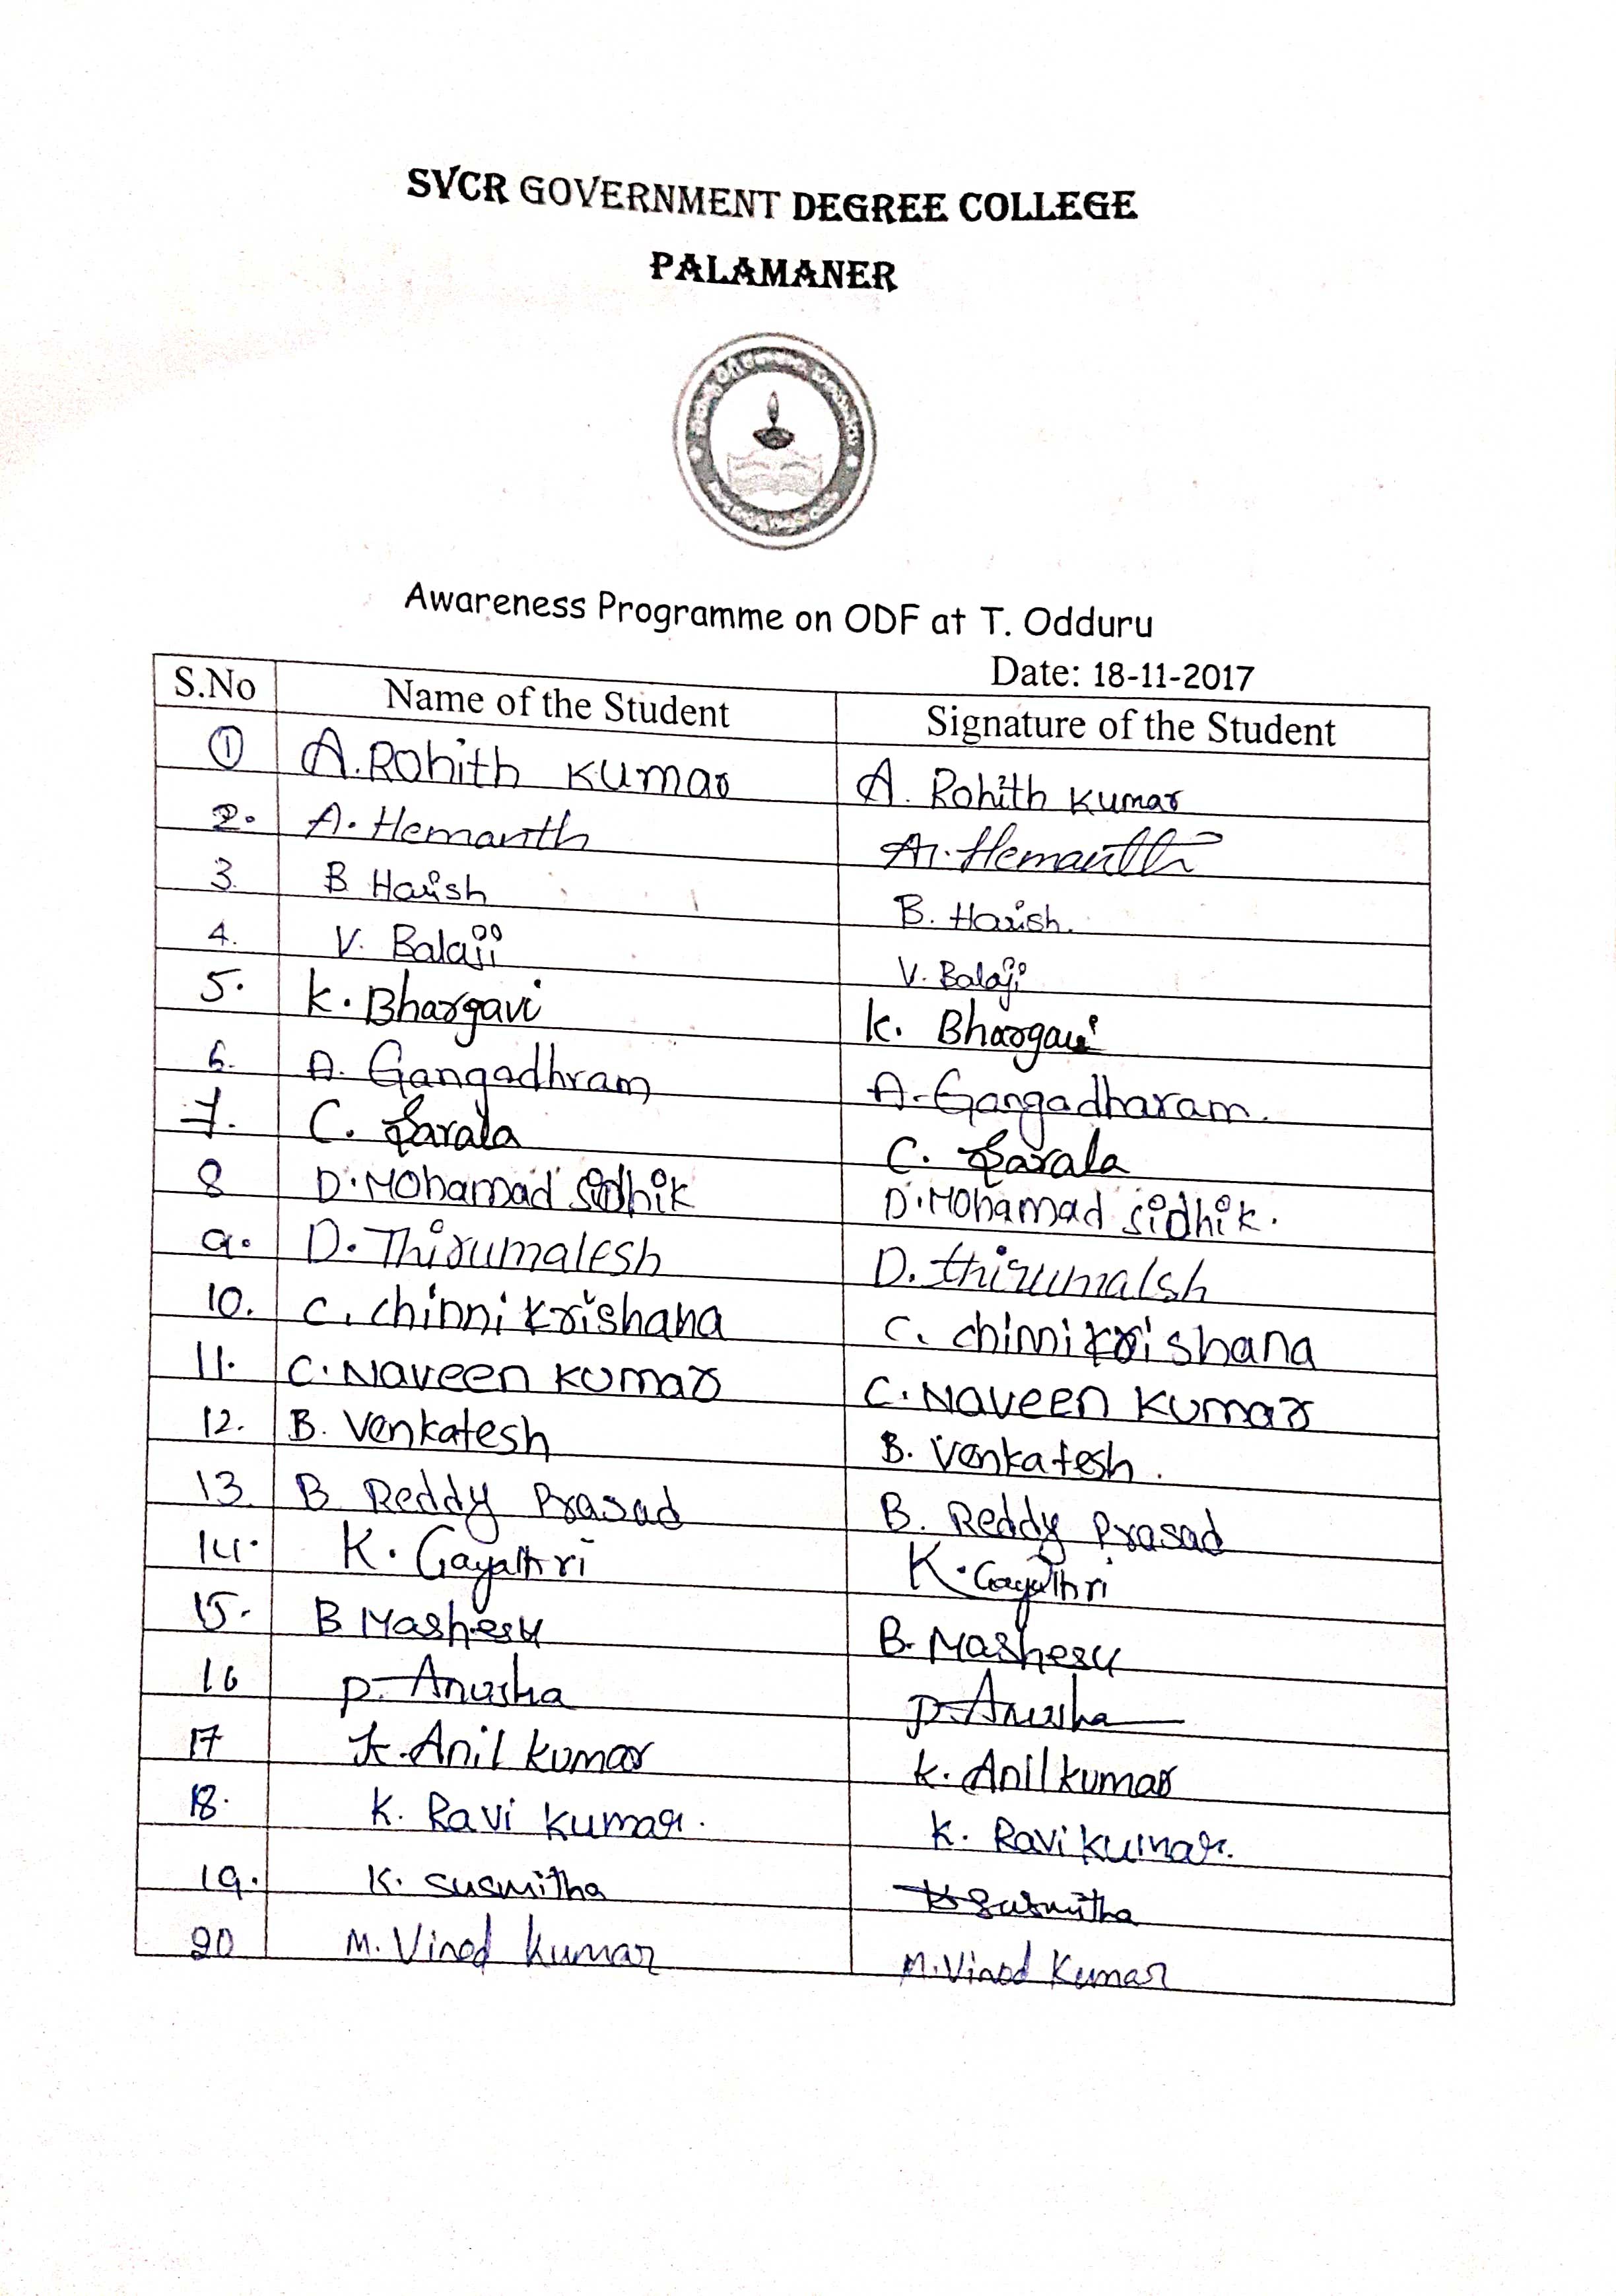 SVCR GOVERNMENT DEGREE COLLEGE
PALAMANER
Awareness Programme on ODF at T. Odduru
Date: 18-11-2017
S.No Name of the Student Signature of the Student
1 A. Rohith Kumar A. Rohith Kumar
2. A. Hemanth A. Hemanth
3. B Harish B. Harish.
4. V. Balaji V. Balaji
5. K. Bhargavi K. Bhargavi
6. A. Gangadhram A. Gangadharam.
7. C. Sarala C. Sarala
8 D. Mohamad Sidhik D. Mohamad Sidhik.
9. D. Thirumalesh D. thirumalsh
10. C. chinni krishana C. chinni krishana
11. C. Naveen Kumar C. Naveen Kumar
12. B. Venkatesh B. Venkatesh.
13. B Reddy Prasad B. Reddy Prasad
14. K. Gayathri K. Gayathri
15. B B.
16 P. Anusha P. Anusha
17 K. Anil kumar K. Anil kumar
18. K. Ravi Kumar. K. Ravi Kumar.
19. K. Susmitha K Susmitha
20 M. Vinod Kumar M. Vinod Kumar